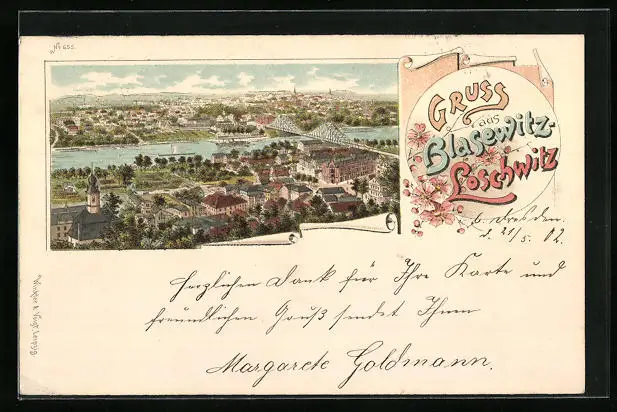 No 655.
Gruss
aus
Blasewitz-
Loschwitz
b. Dresden.
d. 21/5. 02.
Herzlichen Dank für Ihre Karte und
freundlichen Gruß sendet Ihnen
Margarete Goldmann.
Winkler & Voigt, Leipzig